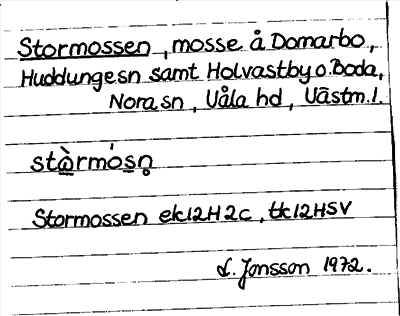 Stormossen, mosse å Domarbo,
Huddunge sn samt Holvastby o. Boda,
Nora sn, Våla hd, Västm. l.
stὰ̱rmós̱n̥
Stormossen ek12H2c, tk12HSV
L. Jonsson 1972.